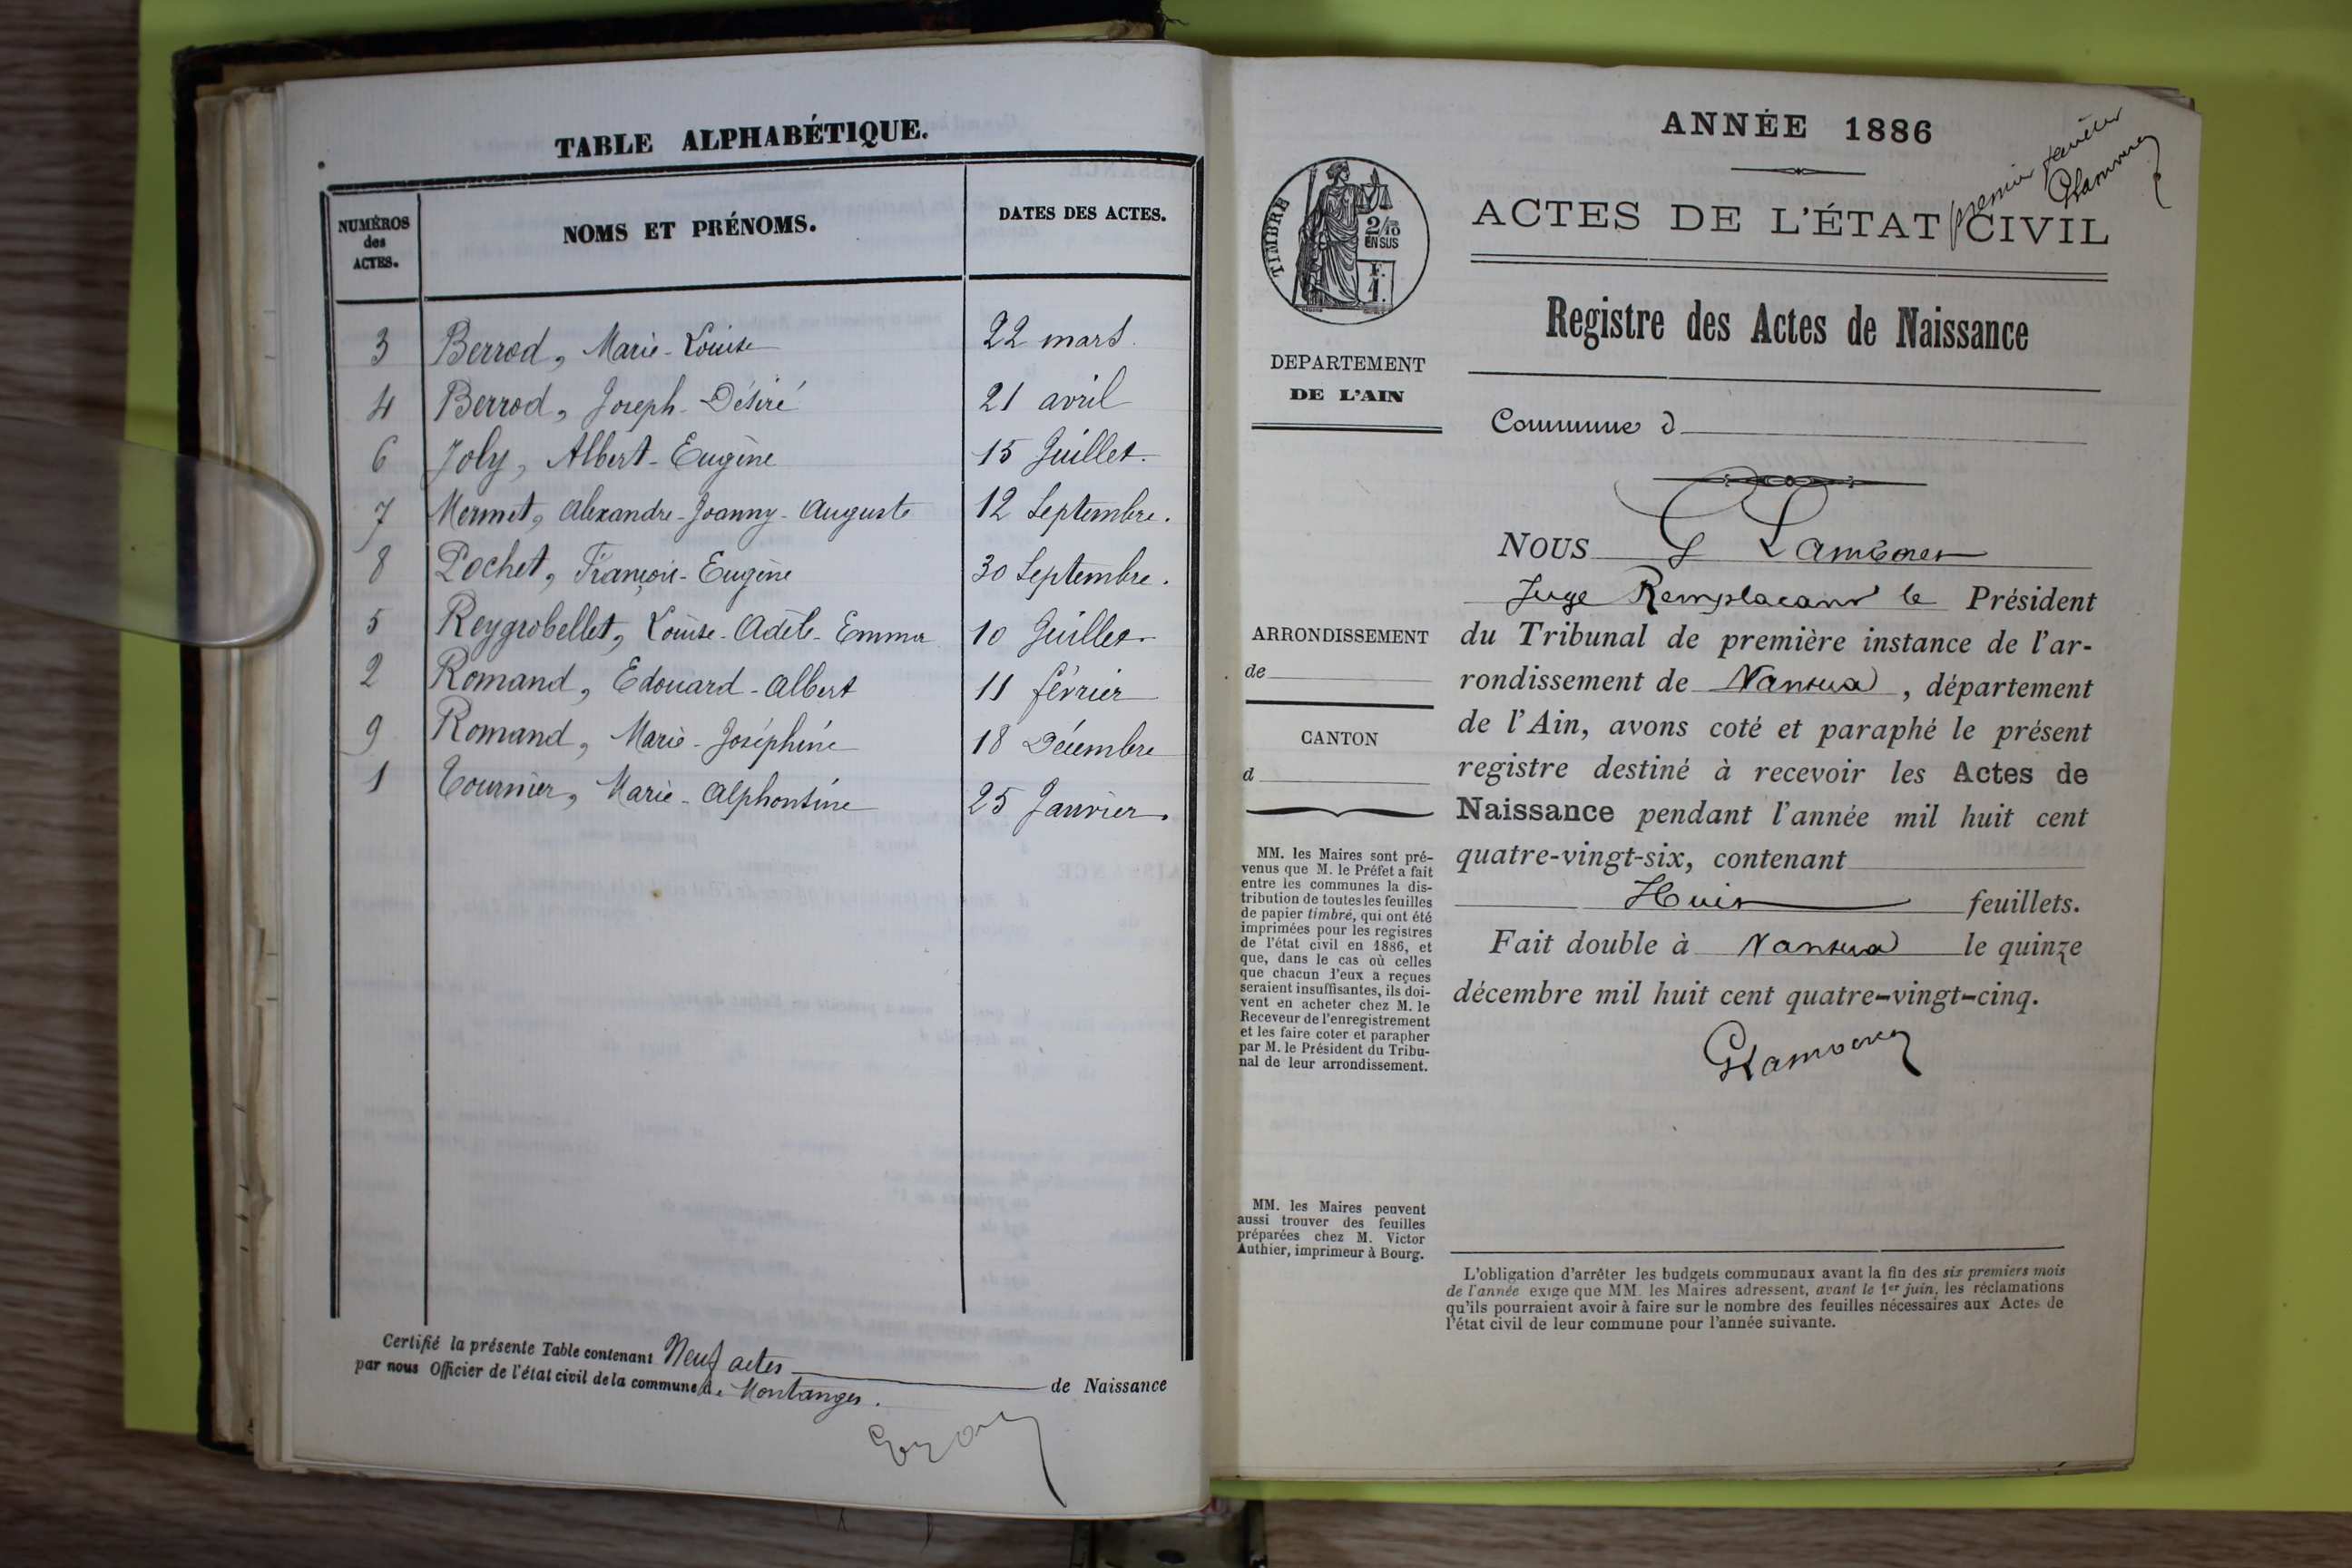 TABLE ALPHABÉTIQUE.
NUMÉROS
des
ACTES.
NOMS ET PRÉNOMS.
DATES DES ACTES.
3 Berrod, Marie-Louise 22 mars.
4 Berrod, Joseph-Désiré 21 avril
6 Joly, Albert-Eugène 15 Juillet.
7 Mermet, Alexandre-Joanny-Auguste 12 Septembre.
8 Pochet, François-Eugène 30 Septembre.
5 Reygrobellet, Louise-Adèle-Emma 10 Juillet.
2 Romand, Edouard-Albert 11 février
9 Romand, Marie-Joséphine 18 Décembre
1 Tournier, Marie-Alphonsine 25 Janvier.
Certifié la présente Table contenant Neuf actes de Naissance
par nous Officier de l'état civil de la commune de Montanges.
ANNÉE 1886
premier feuillet
ACTES DE L'ÉTAT CIVIL
TIMBRE
2/10
EN SUS
F.
1.
Registre des Actes de Naissance
DEPARTEMENT
DE L'AIN
Commune d
NOUS
Juge Remplaçant le Président
du Tribunal de première instance de l'ar-
rondissement de Nantua, département
de l'Ain, avons coté et paraphé le présent
registre destiné à recevoir les Actes de
Naissance pendant l'année mil huit cent
quatre-vingt-six, contenant
Huit feuillets.
Fait double à Nantua le quinze
décembre mil huit cent quatre-vingt-cinq.
ARRONDISSEMENT
de
CANTON
d
MM. les Maires sont pré-
venus que M. le Préfet a fait
entre les communes la dis-
tribution de toutes les feuilles
de papier timbré, qui ont été
imprimées pour les registres
de l'état civil en 1886, et
que, dans le cas où celles
que chacun d'eux a reçues
seraient insuffisantes, ils doi-
vent en acheter chez M. le
Receveur de l'enregistrement
et les faire coter et parapher
par M. le Président du Tribu-
nal de leur arrondissement.
MM. les Maires peuvent
aussi trouver des feuilles
préparées chez M. Victor
Authier, imprimeur à Bourg.
L'obligation d'arrêter les budgets communaux avant la fin des six premiers mois
de l'année exige que MM. les Maires adressent, avant le 1er juin, les réclamations
qu'ils pourraient avoir à faire sur le nombre des feuilles nécessaires aux Actes de
l'état civil de leur commune pour l'année suivante.